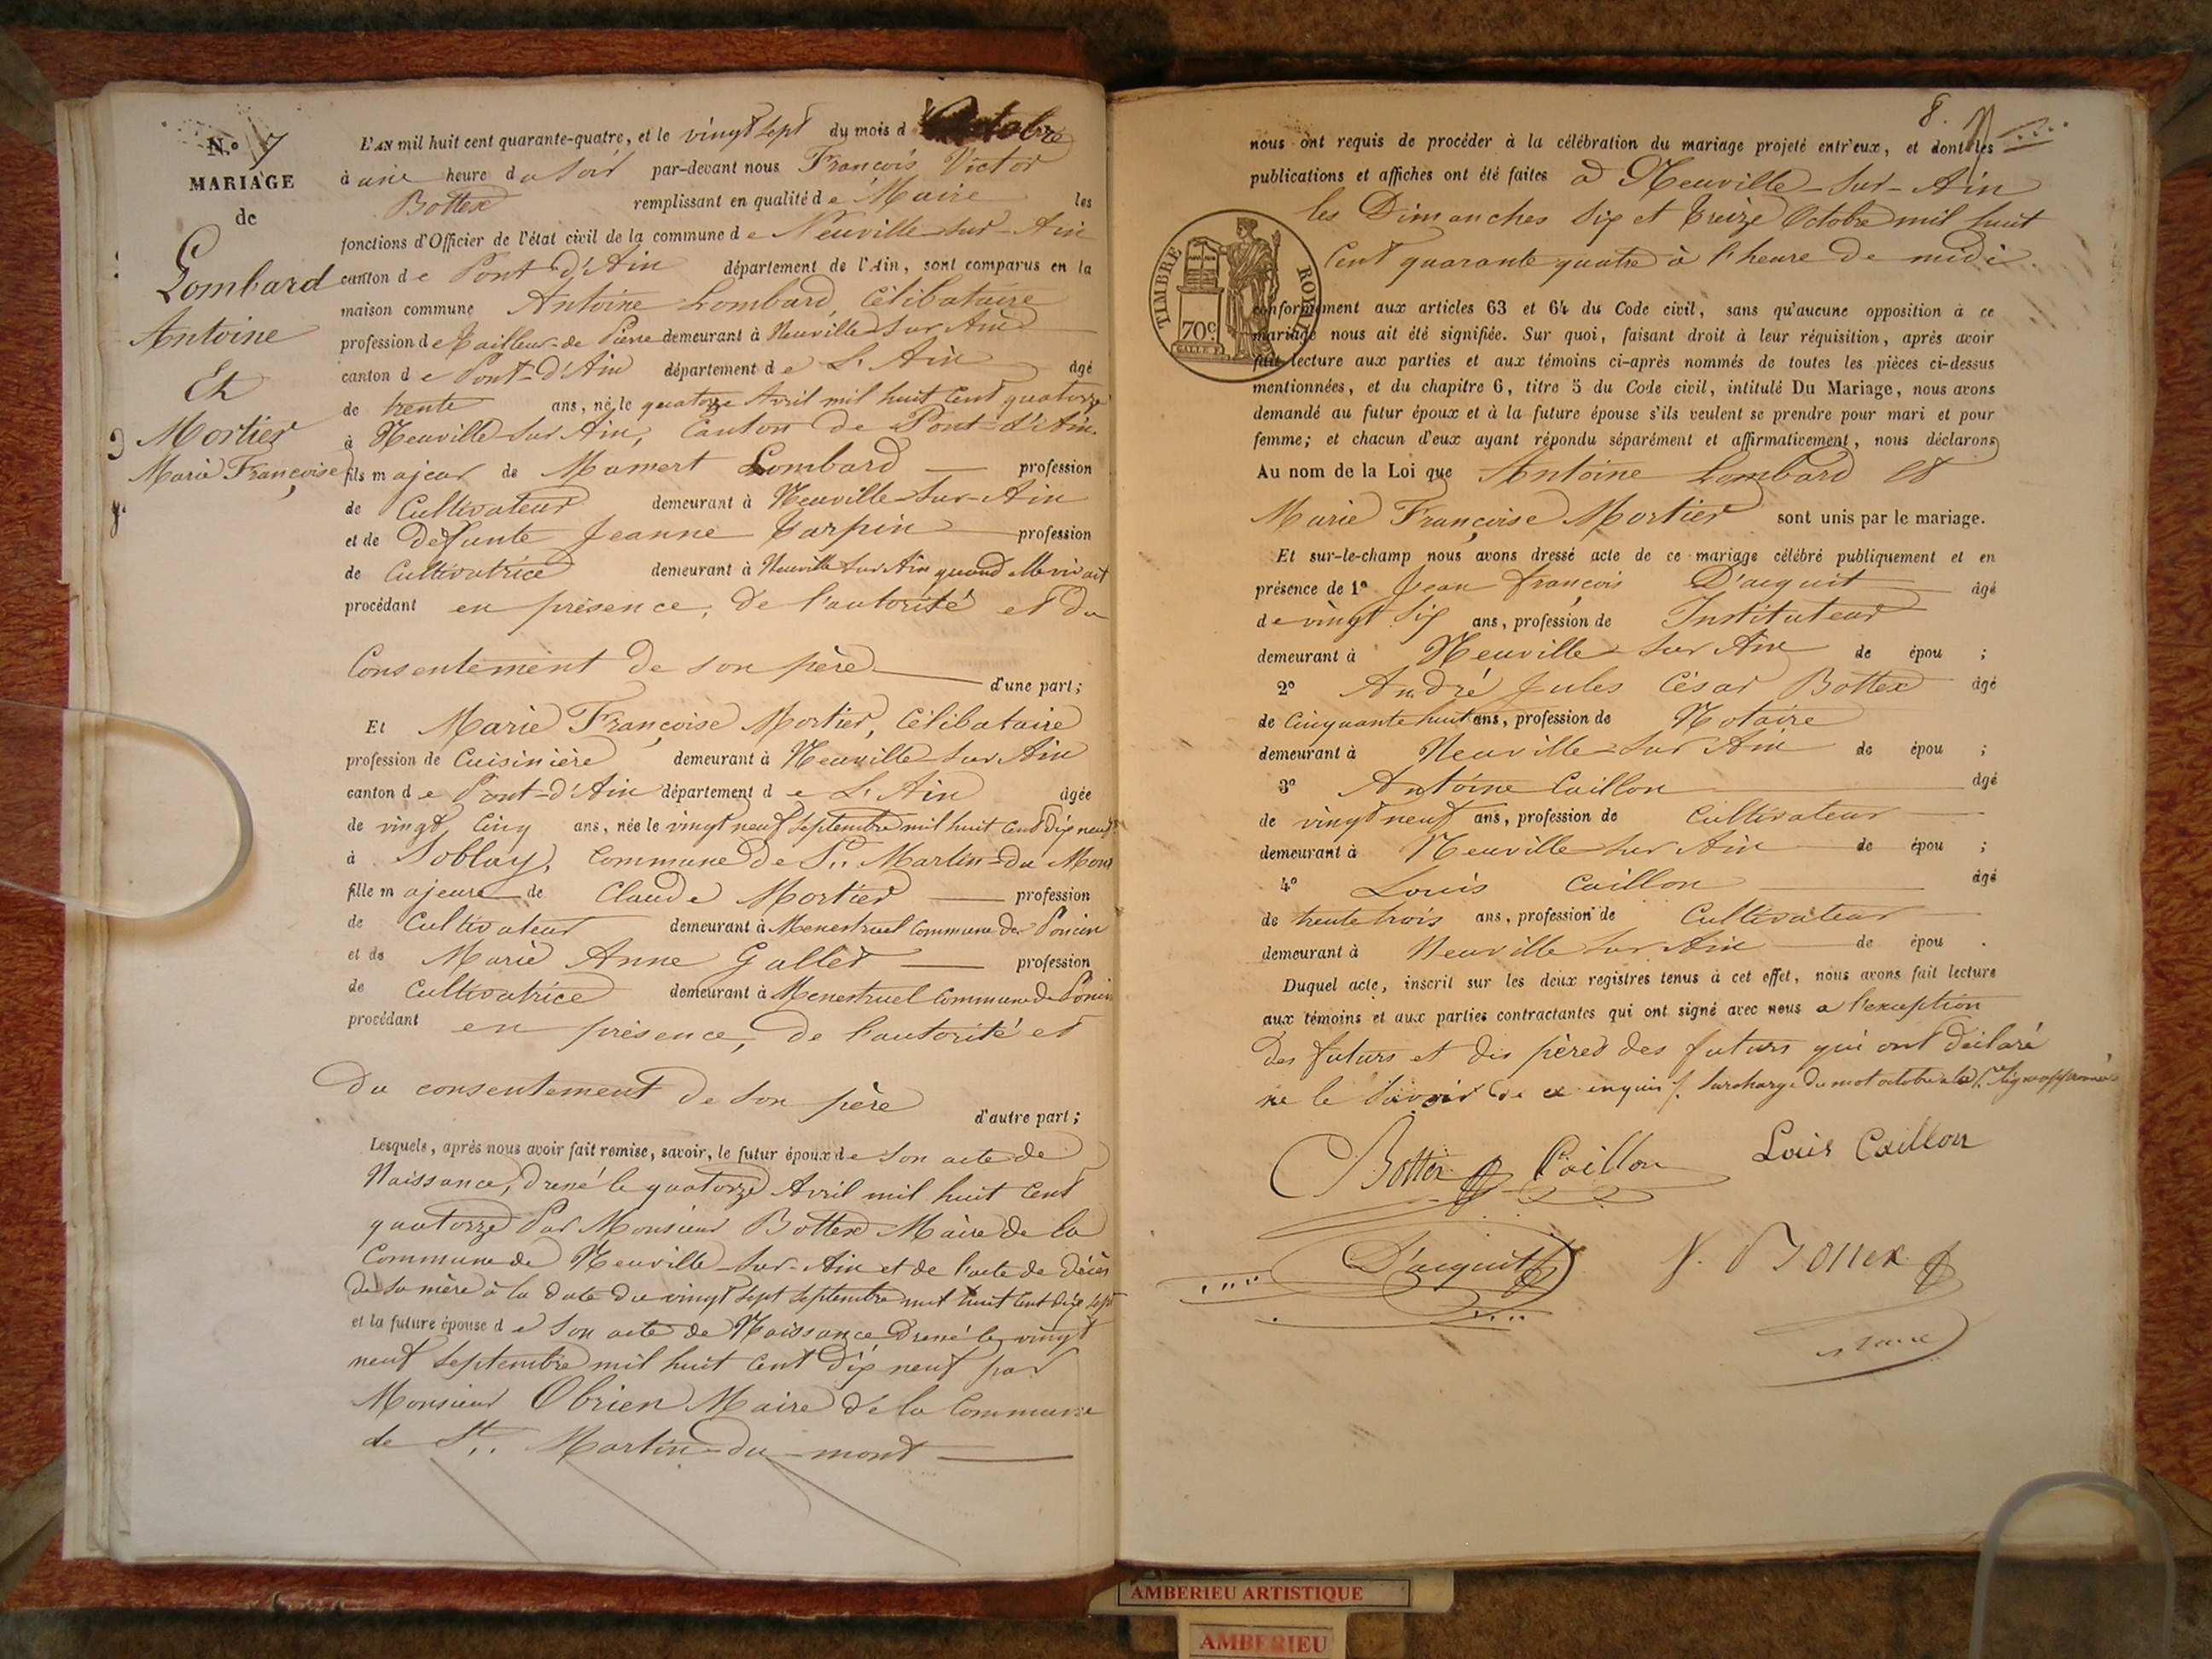 N.o 7
MARIAGE
de
Lombard
Antoine
Et
Mortier
Marie Françoise
L'AN mil huit cent quarante-quatre, et le vingt sept du mois d'Octobre
à une heure du Soir par-devant nous François Victor
Bottex remplissant en qualité de Maire les
fonctions d'Officier de l'état civil de la commune de Neuville-sur-Ain
canton de Pont-d'Ain département de l'Ain, sont comparus en la
maison commune Antoine Lombard, Célibataire
profession de Tailleur-de Pierre demeurant à Neuville sur Ain
canton de Pont-d'Ain département de L'Ain âgé
de trente ans, né le quatorze Avril mil huit Cent quatorze
à Neuville sur Ain, Canton de Pont-d'Ain
fils majeur de Mamert Lombard profession
de Cultivateur demeurant à Neuville-sur-Ain
et de défunte Jeanne Tarpin profession
de Cultivatrice demeurant à Neuville sur Ain quand elle vivait
procédant en présence, de l'autorité et du
Consentement de son père
d'une part;
Et Marie Françoise Mortier, Célibataire
profession de Cuisinière demeurant à Neuville sur Ain
canton de Pont-d'Ain département de L'Ain âgée
de vingt Cinq ans, née le vingt neuf Septembre mil huit Cent dix neuf
à Soblay, Commune de St. Martin-du Mont
fille majeure de Claude Mortier profession
de Cultivateur demeurant à Menestruel Commune de Poncin
et de Marie Anne Gallet profession
de Cultivatrice demeurant à Menestruel Commune de Poncin
procédant en présence, de l'autorité et
du consentement de son père
d'autre part;
Lesquels, après nous avoir fait remise, savoir, le futur époux de son acte de
Naissance, dressé le quatorze Avril mil huit Cent
quatorze Par Monsieur Bottex Maire de la
Commune de Neuville-sur-Ain et de l'acte de décès
de sa mère à la date du vingt sept septembre mil huit cent dix sept
et la future épouse de son acte de Naissance dressé le vingt
neuf septembre mil huit Cent dix neuf par
Monsieur Obrien Maire de la Commune
de St. Martin-du-mont
8.
nous ont requis de procéder à la célébration du mariage projeté entr'eux, et dont les
publications et affiches ont été faites à Neuville-sur-Ain
les Dimanches Six et Treize Octobre mil huit
Cent quarante quatre à l'heure de midi
TIMBRE ROYAL
70c.
conformément aux articles 63 et 64 du Code civil, sans qu'aucune opposition à ce
mariage nous ait été signifiée. Sur quoi, faisant droit à leur réquisition, après avoir
fait lecture aux parties et aux témoins ci-après nommés de toutes les pièces ci-dessus
mentionnées, et du chapitre 6, titre 5 du Code civil, intitulé Du Mariage, nous avons
demandé au futur époux et à la future épouse s'ils veulent se prendre pour mari et pour
femme; et chacun d'eux ayant répondu séparément et affirmativement, nous déclarons
Au nom de la Loi que Antoine Lombard et
Marie Françoise Mortier sont unis par le mariage.
Et sur-le-champ nous avons dressé acte de ce mariage célébré publiquement et en
présence de 1o Jean François D'acquit âgé
de vingt Six ans, profession de Instituteur
demeurant à Neuville sur Ain de épou ;
2o André Jules César Bottex âgé
de Cinquante huit ans, profession de Notaire
demeurant à Neuville-sur Ain de épou ;
3o Antoine Caillon âgé
de vingt neuf ans, profession de Cultivateur
demeurant à Neuville sur Ain de épou ;
4o Louis Caillon âgé
de trente trois ans, profession de Cultivateur
demeurant à Neuville sur Ain de épou .
Duquel acte, inscrit sur les deux registres tenus à cet effet, nous avons fait lecture
aux témoins et aux parties contractantes qui ont signé avec nous a l'exception
des futurs et des pères des futurs qui ont déclaré
ne le savoir de ce enquis /. Surcharge du mot octobre a la 1.re ligne approuvée
Bottex Caillon Louis Caillon
D'acquit V. Bottex
maire
AMBERIEU ARTISTIQUE
AMBERIEU